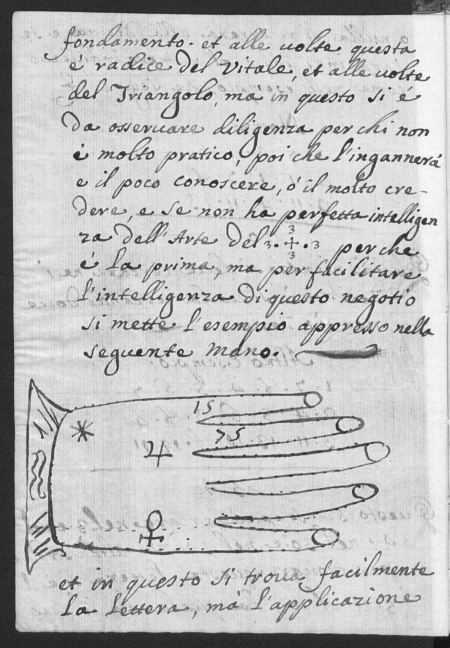 fondamento. et alle volte questa
é radice del Vitale, et alle volte
del Triangolo, ma in questo si é
da osseruare diligenza per chi non
é molto pratico, poi che l'ingannerá
e il poco conoscere, ó il molto cre-
dere, e se non ha perfetta intelligen
za dell'Arte del 3·3+3·3 perche
é la prima, ma per facilitare
l'intelligenza di questo negotio
si mette l'esempio appresso nella
seguente mano.
15
75
♃
♀
et in questo si troua facilmente
la lettera, má l'applicazione